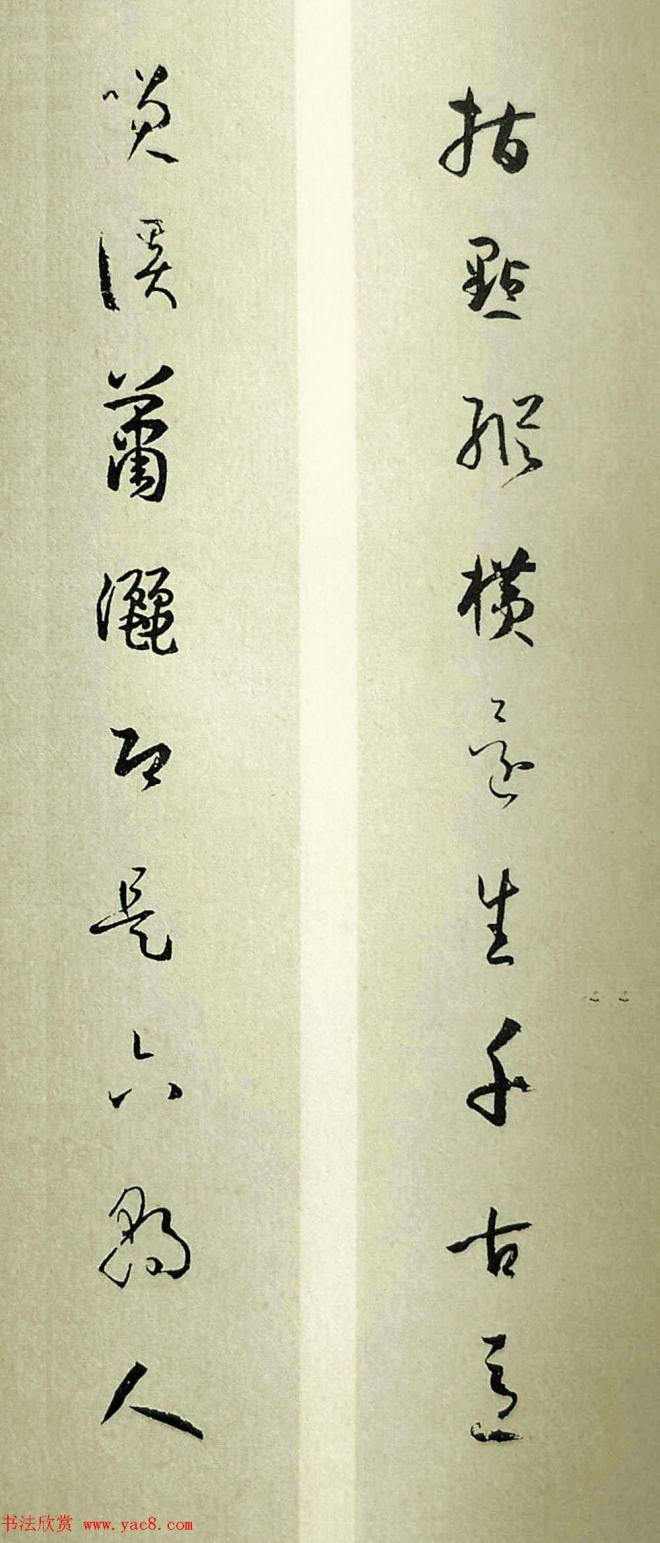 指點縱橫生千古意
咲談蕭灑即是六朝人
书法欣赏 www.yac8.com